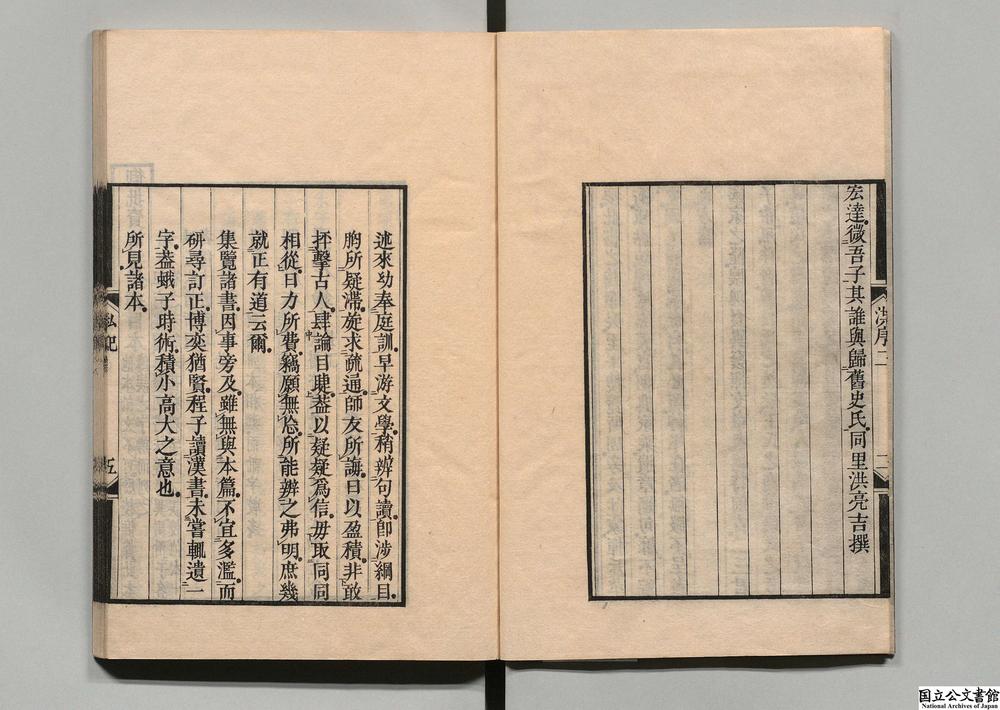 宏達微吾子其誰與歸舊史氏同里洪亮吉撰
洪序
二
述來幼奉庭訓早游文學稍辨句讀即涉綱目
胸所疑滯旋求疏通師友所誨日以盈積非敢
抨擊古人肆論目睫葢以疑疑爲信毋取同同
相從日力所費竊願無怠所能辨之弗明庶幾
就正有道云爾
集覽諸書因事旁及雖無與本篇不宜多濫而
研尋訂正博奕猶賢程子讀漢書未嘗輒遺一
字葢蛾子時術積小高大之意也
所見諸本
私記
五
国立公文書館
National Archives of Japan